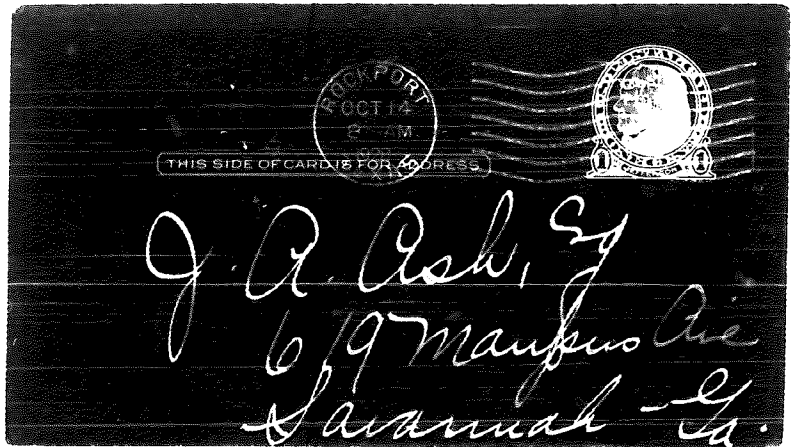 ROCKPORT
OCT 14
8 AM
THIS SIDE OF CARD IS FOR ADDRESS
J. A. Ash, Esq
619 Maupus Ave
Savannah Ga.